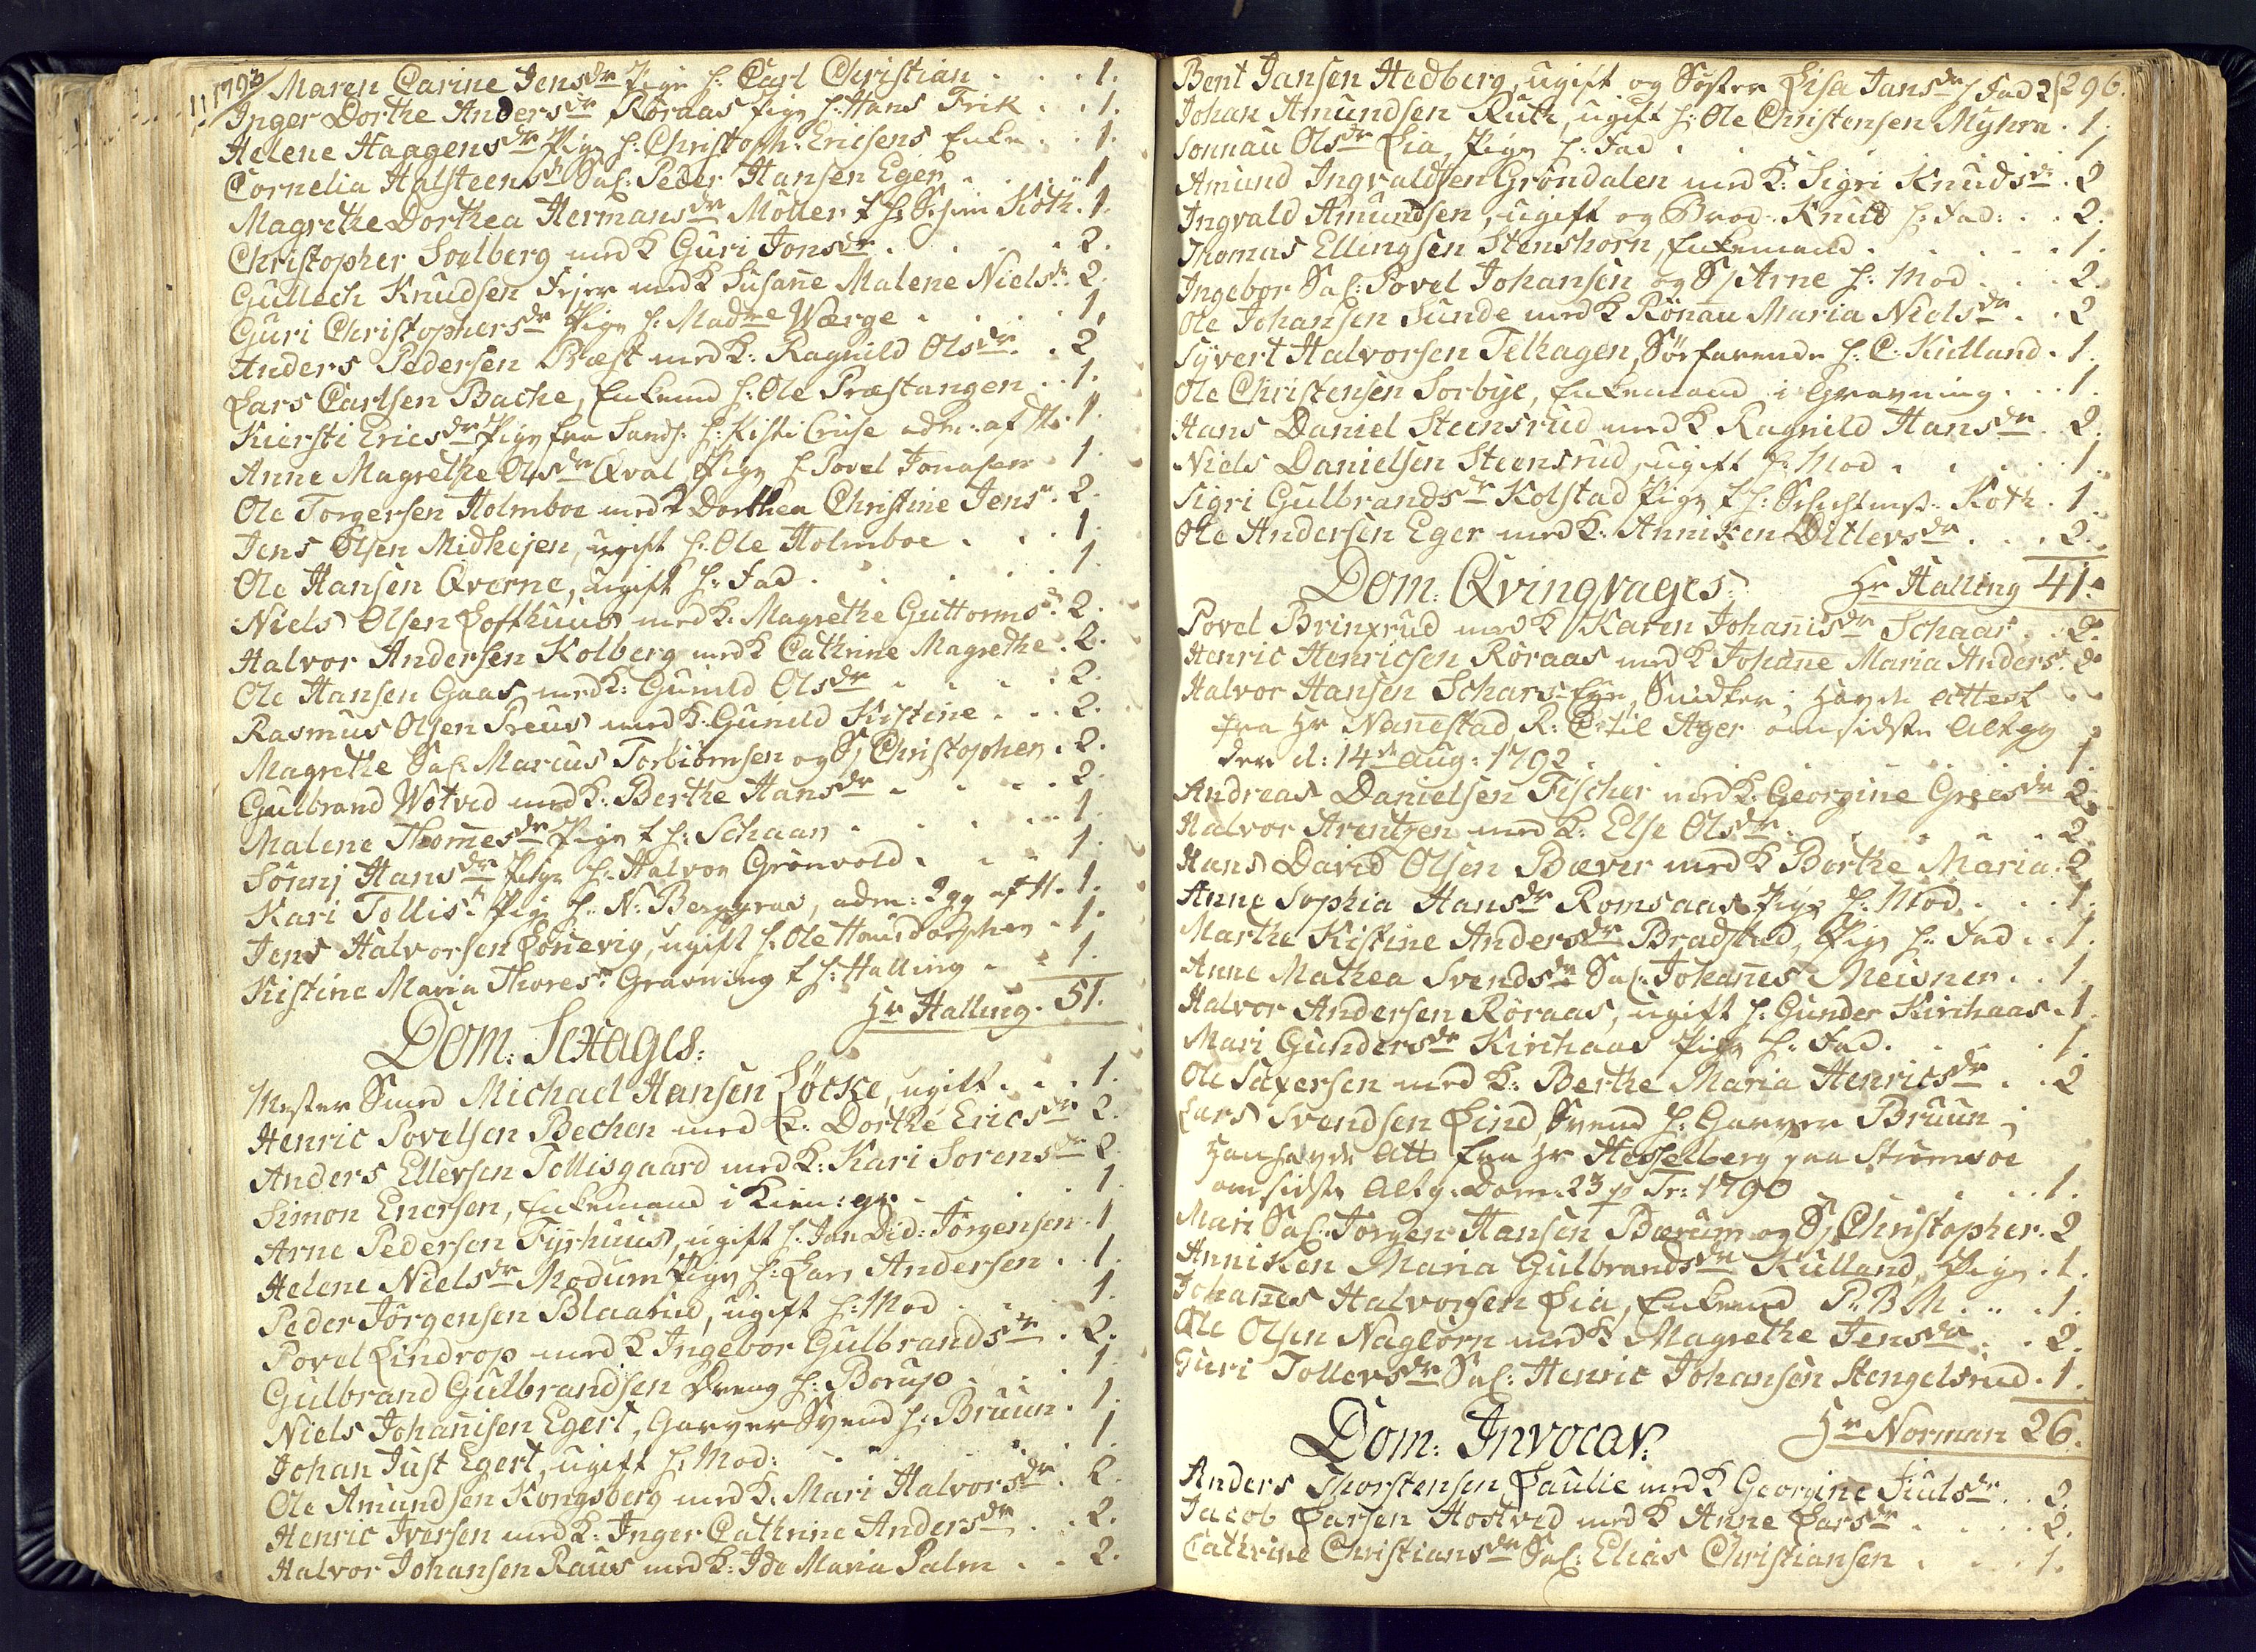 1793 Maren Carine Jensdr Pige h: Carl Christian . . . 1.
Inger Dorthe Andersdr Roraas Pige h: Hans Frik . . 1.
Helene Haagensdr Pige h: Christoph: Ericsens Enke . . 1.
Cornelia Halsteensdr Sal: Peder Hansen Eger . . . . 1
Magrethe Dorthea Hermansdr Möller f h: Koth. 1.
Christopher Soelberg med K Guri Jonsdr . . . . . 2.
Gullech Knudsen Fejer med K Susane Malene Nielsdr. 2.
Guri Christophersdr Pige h: Madme Wærge . . . . 1.
Anders Pedersen Præst med K: Ragnild Olsdr. . 2
Lars Carlsen Bache, Enkemd h: Ole Præstangen . . 1.
Kiersti Ericsdr Pige fra Sands: h: Kisti Cruse adm: af H. 1.
Anne Magrethe Olsdr Qval Pige h Povel Jonasen . 1.
Ole Torgersen Holmboe med K Dorthea Christine Jensdr. 2.
Jens Olsen Midhejen, ugift h: Ole Holmboe . . . 1.
Ole Hansen Qverne, ugift h: Fad . . . . . . 1.
Niels Olsen Lofthuus med K. Magrethe Guttormsdr. 2.
Halvor Andersen Kolberg med K Cathrine Magrethe. 2.
Ole Hansen Gaas med K: Gunild Olsdr . . . . 2.
Rasmus Olsen Preus med K: Gunild Kistine . . . 2.
Magrethe Sal: Marcus Torbiörnsen og S/ Christopher . 2.
Gulbrand Wotved med K: Berthe Hansdr . . . . 2.
Malene Thomesdr Pige f h: Schaan . . . . . . 1.
Sönnj Hansdr Pige h: Halvor Grönvold . . . . 1.
Kari Tollisdr Pige h: N: Berggrav, adm: 2gg af H. 1.
Jens Halvorsen Lönevig, ugift h: Ole Hausdorphen . 1.
Kistine Maria Thoresdr Gravning f h: Halling . . 1.
Hr Halling. 51.
Dom: Sexages:
Mester Smed Michael Hansen Löcke, ugift . . . 1.
Henric Povelsen Bechen med K: Dorthe Ericsdr 2.
Anders Ellevsen Tollisgaard med K: Kari Sorensdr 2.
Simon Enersen, Enkemand i Kien: gr. . . . 1
Arne Pedersen Fyrhuus, ugift h: Jan Did: Jorgensen . 1
Helene Nielsdr Modum Pige h: Lars Andersen . . 1.
Peder Jörgensen Blaarud, ugift h: Mod . . . . 1.
Povel Lindrop med K Ingebor Gulbrandsdr . 2.
Gulbrand Gulbrandsen Dreng h: Borup . . . 1.
Niels Johanisen Egert, Garver Svend h: Bruun . 1.
Johan Just Egert, ugift h: Mod: . . . . . 1
Ole Amundsen Kongsberg med K: Mari Halvorsdr . 2.
Henric Iversen med K: Inger Cathrine Andersdr . . 2.
Halvor Johansen Raus med K: Ide Maria Palm . . 2.
Bent Jansen Hedberg, ugift og Söster Lisa Jansdr / Fad 2 296.
Johan Amundsen Ruth, ugift h: Ole Christensen Myhra . 1.
Sonnau Olsdr Lia, Pige h: Fad . . . . . . 1
Amund Ingvaldsen Gröndalen med K: Sigri Knudsdr . 2
Ingvald Amundsen, ugift og Brod. Knud h: Fad: . . 2.
Thomas Ellingsen Stenshorn, Enkemand . . . . . 1.
Ingebor Sal: Povel Johansen og S/ Arne h: Mod . . . 2.
Ole Johansen Sunde med K Rönau Maria Nielsdr . . 2
Syvert Halvorsen Telhagen, Söefarende h: C: Kulland . 1.
Ole Christensen Sorbye, Enkemand i Gravning . . . 1.
Hans Daniel Steensrud med K Ragnild Hansdr . 2.
Niels Danielsen Steensrud, ugift h: Mod . . . . . 1.
Sigri Gulbrandsdr Kolstad Pige f h: Schichtmst: Koth . 1.
Ole Andersen Eger med K: Anniken Ditlevsdr . . . 2.
Dom: Qvinqvages: Hr Halling 41.
Povel Brinxrud med K Karen Johanisdr Schaar . . 2.
Henric Henricsen Roraas med K Johane Maria Andersdr. 2.
Halvor Hansen Schars-Eye, Snidker; havde Attest
fra Hr Nanestad, R: C: til Ager om sidste Altgg
der d: 14de Aug: 1792 . . . . . . . . 1.
Andreas Danielsen Fischer med K: Georgine Greesdr 2.
Halvor Arentzen med K: Else Olsdr . . . . . . 2.
Hans David Olsen Bæver med K Berthe Maria . 2.
Anne Sophia Hansdr Romsaas Pige h: Mod . . . 1.
Marthe Kistine Andersdr Bradstad, Pige h: Fad . . 1.
Anne Mathea Svendsdr Sal: Johanes Meisner . . 1.
Halvor Andersen Röraas, ugift h: Gunder Kirchaas . 1.
Mari Gundersdr Kirchaas Pige h: Fad . . . . . 1.
Ole Saxersen med K: Berthe Maria Henricsdr . . 2
Lars Svendsen Lind, Svend h: Garver Bruun;
Han havde Att: fra Hr Hesselberg paa Strömsoe
om sidste Altg: Dom. 23 p Tr: 1790 . . . . . 1.
Mari Sal: Jorgen Hansen Bærum og S/ Christopher. 2
Anniken Maria Gulbrandsdr Kulland, Pige . 1.
Johanes Halvorsen Lia, Enkemd P: B M . . . . 1.
Ole Olsen Naglörn med K Magrethe Jensdr . . . 2.
Guri Tollevsdr Sal: Henric Johansen Hengelsrud . 1.
Dom: Invocav: Hr Norman 26.
Anders Thorstensen Paulie med K Georgine Juulsdr . . 2.
Jacob Larsen Hostved med K Anne Larsdr . . . . . 2.
Cathrine Christiansdr Sal: Elias Christiansen . . . . 1.